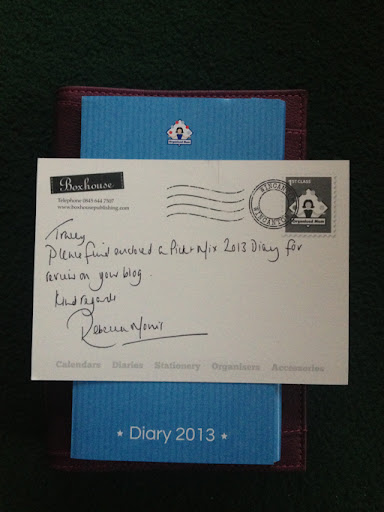 Organised Mum
Boxhouse
Telephone 0845 644 7507
www.boxhousepublishing.com
1ST CLASS
Organised Mum
Tracey
Please find enclosed a Pick + Mix 2013 Diary for
review on your blog.
Kind regards
Rebecca Morris
Calendars Diaries Stationery Organisers Accessories
★ Diary 2013 ★